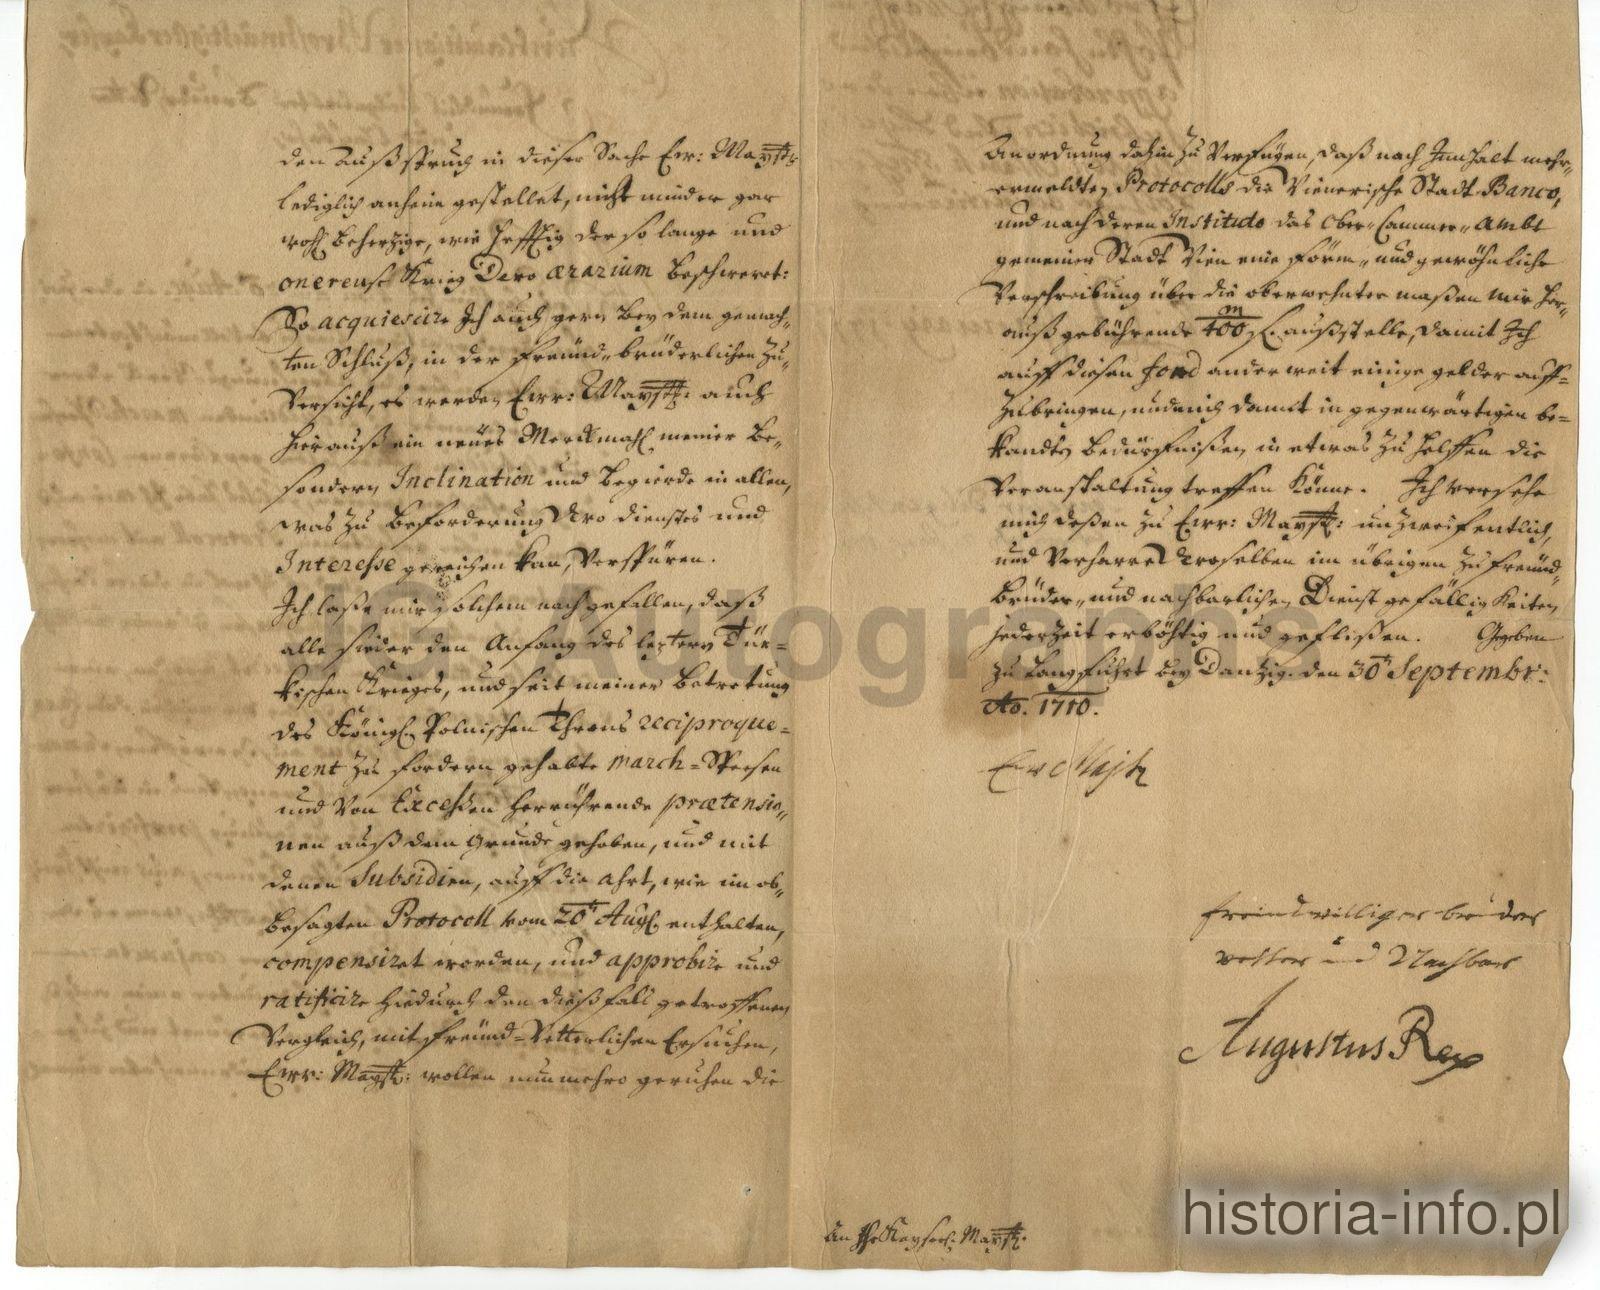 den Außspruch in dieser Sache Ew: Mayst:
lediglich anheim gestellet, nicht minder gar
wohl beherzige, wie hefftig der so lange und
onereuse Krieg Dero ærarium beschweret:
So acquiescire Ich auch gern bey dem gemach„
ten Schluß, in der freünd„brüderlichen Zu„
versicht, es werden Ewr: Mayst: auch
hierauß ein neües Merckmahl meiner be„
sondern Inclination und begierde in allen,
was zu beforderung dero dienstes und
Interesse gereichen kan, verspüren.
Ich laße mir solchem nach gefallen, daß
alle sieder den Anfang des leztern Tür=
kischen Krieges, und seit meiner betretung
des Königl. Polnischen Throns reciproque=
ment zu fordern gehabte march=Speesen
und von Excessen herrührende prætensio„
nen auß dem Grunde gehoben, und mit
denen Subsidien, auff die ahrt, wie im ob„
besagten Protocoll vom 20t Aug. enthalten,
compensiret worden, und approbire und
ratificire hiedurch den dießfalls getroffenen
Vergleich, mit freünd=Vetterlichen Ersuchen,
Ewr: Mayst: wollen nunmehro geruhen die
Anordnung dahin zu verfügen, daß nach Innhalt mehr„
ermeldten Protocolls die Wienerische Stadt Banco,
und nach deren Instituto das Ober„Cammer„Ambt
gemeiner Stadt Wien eine förm„ und gewöhnliche
Verschreibung über die oberwehnter maßen mir her„
auß gebührende 400 m fl. außstelle, damit Ich
auff diesen fond anderweit einige gelder auff=
zubringen, und mich damit in gegenwärtigen be=
kandten bedürfnißen in etwas zu helffen die
Veranstaltung treffen könne. Ich versehe
mich deßen zu Ewr: Mayst: unzweifentlich,
und verharre deroselben im übrigen zu freünd„
brüder„ und nachbarlichen Dienstgefälligkeiten
jederzeit erböhtig und geflißen. Gegeben
zu Langfuhrt bey Dantzig den 30t Septembr:
Ao. 1710.
Ew Majtt
freindwilliger bruder
vetter und Nachbar
Augustus Rex
An Kayserl. Mayst:
Autographs
historia-info.pl